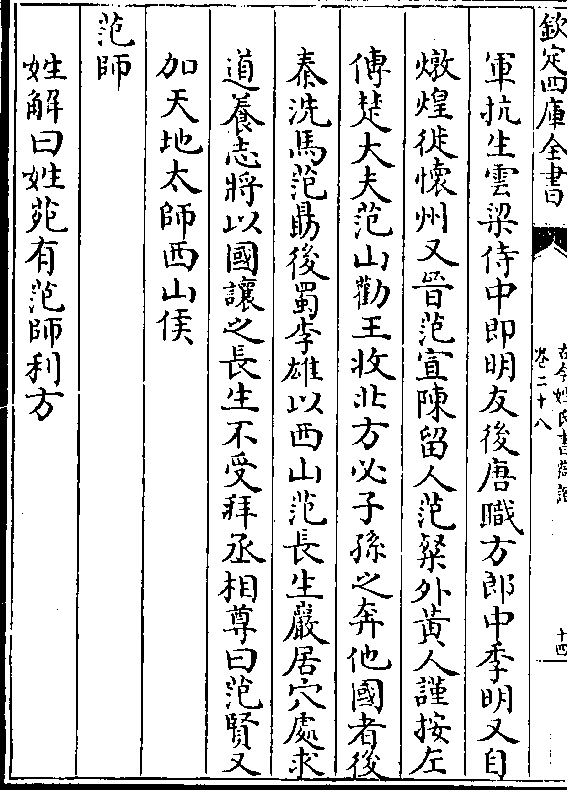 欽定四庫全書
古今姓氏書辯證
卷二十八
十四
軍抗生雲梁侍中即明友後唐職方郎中季明又自
燉煌徙懷州又晉范宣陳留人范粲外黄人謹按左
傳楚大夫范山勸王收北方必子孫之奔他國者後
秦洗馬范勗後蜀李雄以西山范長生巖居穴處求
道養志將以國讓之長生不受拜丞相尊曰范賢又
加天地太師西山侯
范師
姓解曰姓苑有范師利方